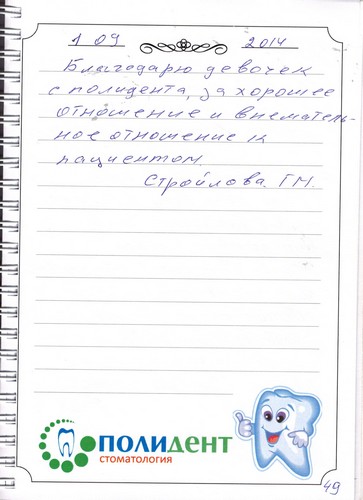 1 09 2014
Благодарю девочек
с полидента, за хорошее
отношение и вниматель-
ное отношение к
пациентом.
Стройлова ГМ.
ПОЛИДЕНТ
СТОМАТОЛОГИЯ
49